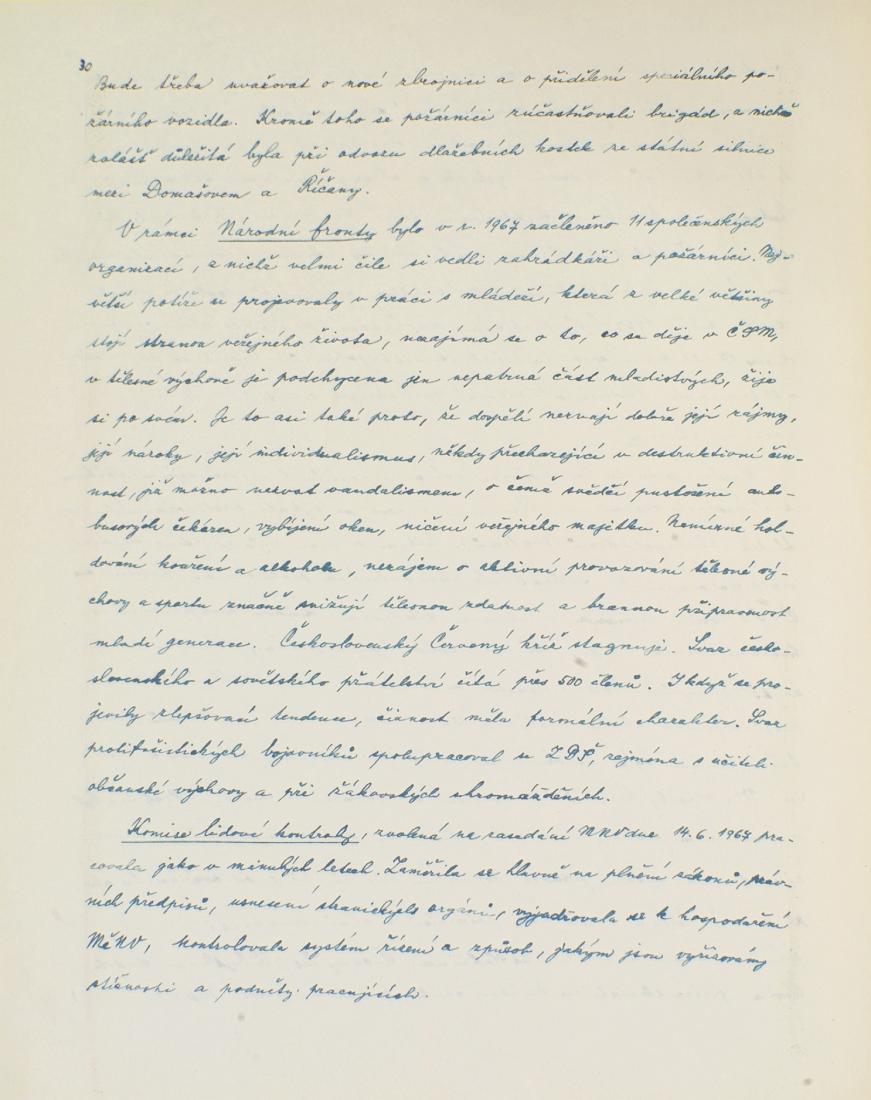 30
Bude třeba uvažovat o nové zbrojnici a o přidělení speciálního po-
žárního vozidla. Kromě toho se požárníci zúčastňovali brigád, z nichž
zvlášť důležitá byla při odvozu dlažebních kostek ze státní silnice
mezi Domašovem a Říčany.
V rámci Národní fronty bylo v r. 1967 začleněno 11 společenských
organizací, z nichž velmi čile si vedli zahrádkáři a požárníci. Nej-
větší potíže se projevovaly v práci s mládeží, která z velké většiny
stojí stranou veřejného života, nezajímá se o to, co se děje v ČSM,
v tělesné výchově je podchycena jen nepatrná část mladistvých, žije
si po svém. Je to asi také proto, že dospělí neznají dobře její zájmy,
její nároky, její individualismus, někdy přecházející v destruktivní čin-
nost, již možno nazvat vandalismem, o čemž svědčí pustošení auto-
busových čekáren, vybíjení oken, ničení veřejného majetku. Nemírné hol-
dování kouření a alkoholu, nezájem o aktivní provozování tělesné vý-
chovy a sportu značně snižují tělesnou zdatnost a brannou připravenost
mladé generace. Československý Červený kříž stagnuje. Svaz česko-
slovenského a sovětského přátelství čítá přes 500 členů. I když se pro-
jevily zlepšovací tendence, činnost měla formální charakter. Svaz
protifašistických bojovníků spolupracoval se ZDŠ, zejména s učiteli
občanské výchovy a při žákovských shromážděních.
Komise lidové kontroly, zvolená na zasedání NV dne 14. 6. 1967 pra-
covala jako v minulých letech. Zaměřila se hlavně na plnění zákonů, práv-
ních předpisů, usnesení stranických orgánů, vyjadřovala se k hospodaření
MěNV, kontrolovala systém řízení a způsob, jakým jsou vyřizovány
stížnosti a podněty pracujících.